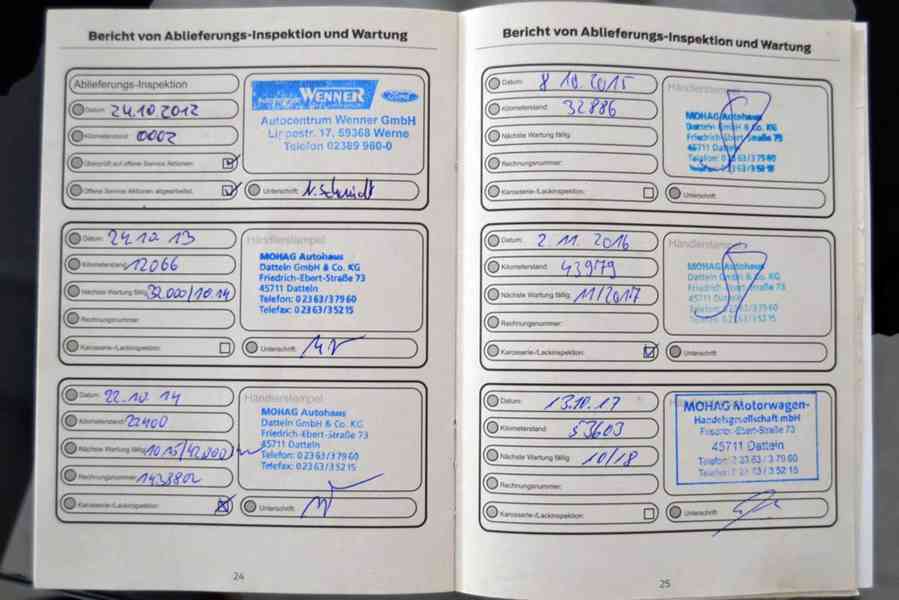 Bericht von Ablieferungs-Inspektion und Wartung
Ablieferungs-Inspektion
Datum: 24.10.2012
Kilometerstand: 0002
Überprüft auf offene Service Aktionen:
Offene Service Aktionen abgearbeitet.
WENNER Ford
Autocentrum Wenner GmbH
Lippestr. 17, 59368 Werne
Telefon 02389 980-0
Unterschrift: N. Schmidt
Datum: 24.10.13
Kilometerstand: 12066
Nächste Wartung fällig: 32.000/10.14
Rechnungsnummer:
Karosserie-/Lackinspektion:
Händlerstempel
MOHAG Autohaus
Datteln GmbH & Co. KG
Friedrich-Ebert-Straße 73
45711 Datteln
Telefon: 0 23 63/3 79 60
Telefax: 0 23 63/3 52 15
Unterschrift:
Datum: 22.10.14
Kilometerstand: 22400
Nächste Wartung fällig: 10.15/42.000
Rechnungsnummer: 1433802
Karosserie-/Lackinspektion:
Händlerstempel
MOHAG Autohaus
Datteln GmbH & Co. KG
Friedrich-Ebert-Straße 73
45711 Datteln
Telefon: 0 23 63/3 79 60
Telefax: 0 23 63/3 52 15
Unterschrift:
24
Bericht von Ablieferungs-Inspektion und Wartung
Datum: 8.10.2015
Kilometerstand: 32886
Nächste Wartung fällig:
Rechnungsnummer:
Karosserie-/Lackinspektion:
Händlerstempel
MOHAG Autohaus
Datteln GmbH & Co. KG
Friedrich-Ebert-Straße 73
45711 Datteln
Telefon: 0 23 63/3 79 60
Telefax: 0 23 63/3 52 15
Unterschrift:
Datum: 2.11.2016
Kilometerstand: 43979
Nächste Wartung fällig: 11/2017
Rechnungsnummer:
Karosserie-/Lackinspektion:
Händlerstempel
MOHAG Autohaus
Datteln GmbH & Co. KG
Friedrich-Ebert-Straße 73
45711 Datteln
Telefon: 0 23 63/3 79 60
Telefax: 0 23 63/3 52 15
Unterschrift:
Datum: 13.10.17
Kilometerstand: 53603
Nächste Wartung fällig: 10/18
Rechnungsnummer:
Karosserie-/Lackinspektion:
MOHAG Motorwagen-
Handelsgesellschaft mbH
Friedrich-Ebert-Straße 73
45711 Datteln
Telefon: 0 23 63/3 79 60
Telefax: 0 23 63/3 52 15
Unterschrift:
25